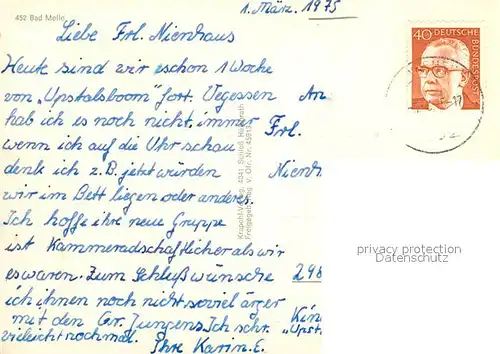 452 Bad Melle
1. März. 1975
Liebe Frl. Nienhaus
Heute sind wir eschon 1 Woche
von „Upstalsboom" fort. Vegessen
hab ich es noch nicht, immer
wenn ich auf die Uhr schau
denk ich z.B. jetzt würden
wir im Bett liegen oder anderes.
Ich hoffe ihre neue Gruppe
ist Kammeradschaftlicher als wir
es waren. Zum Schluß wünsche
ich ihnen noch nicht soviel ärger
mit den Gr. Jungens. Ich schr.
vieleicht nochmal. Ihre Karin. E.
An
Frl.
Nienh
298
Kin
"Upst
40 DEUTSCHE BUNDESPOST
Krapohl-Verlag, 4041 Schloß
privacy protection
Datenschutz